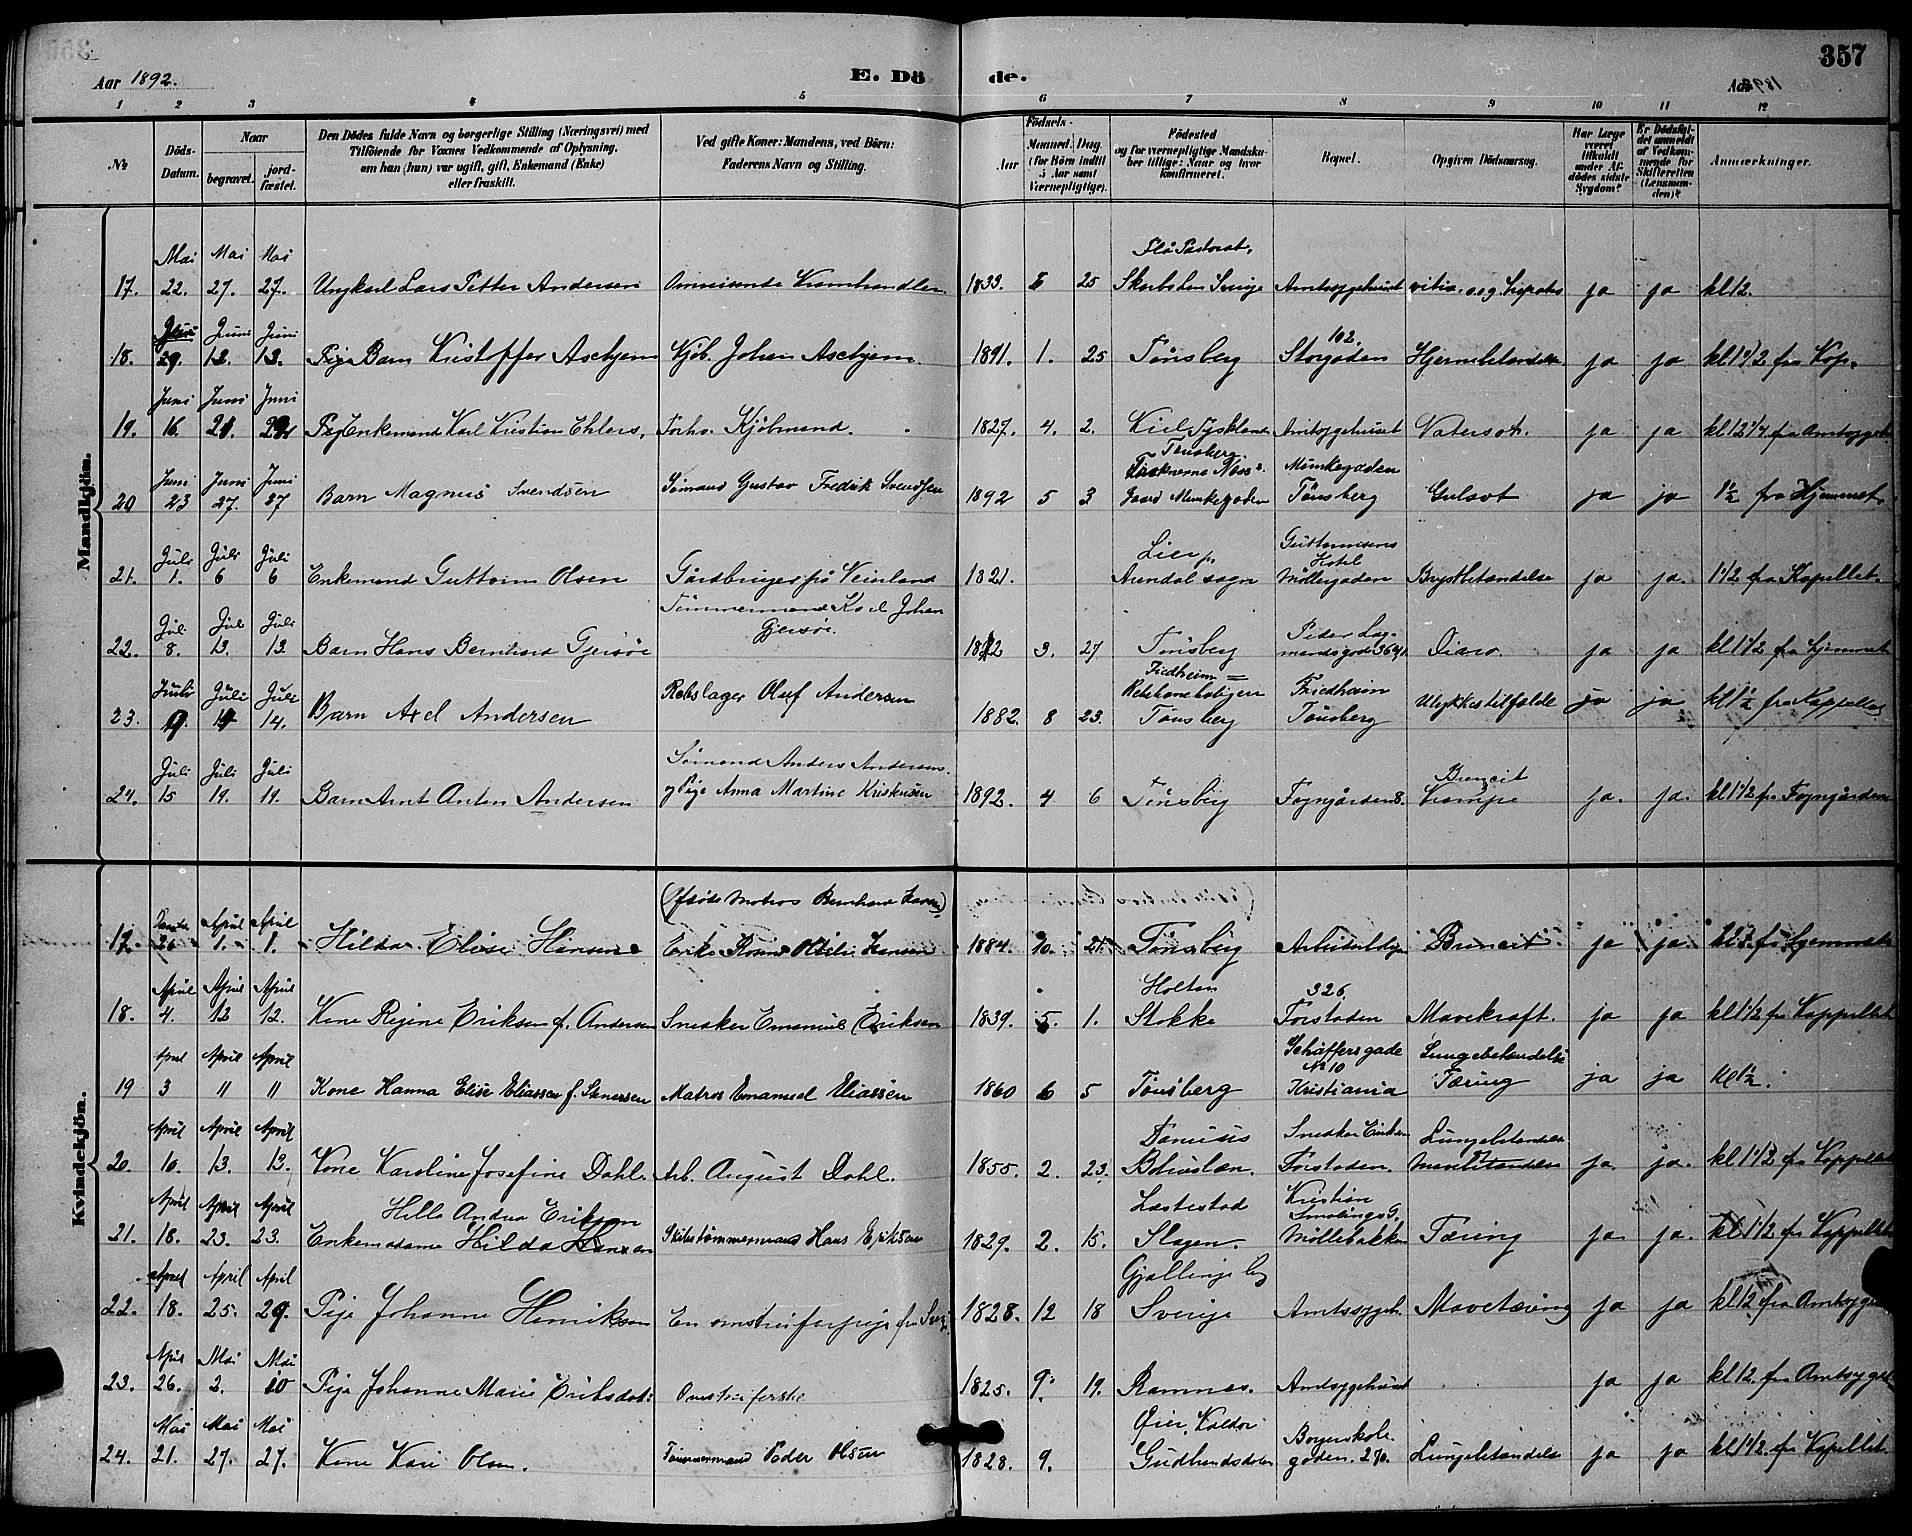 357
Aar 1892.
E. Dö de.
Aar 1892
1 2 3 4 5 6 7 8 9 10 11 12
No
Döds-Datum.
Naar
begravet.
jord-fæstet.
Den Dödes fulde Navn og borgerlige Stilling (Næringsvei) med
Tilföiende for Voxnes Vedkommende af Oplysning,
om han (hun) var ugift, gift, Enkemand (Enke)
eller fraskilt.
Ved gifte Koner: Mandens, ved Börn:
Faderens Navn og Stilling.
Födsels-
Aar
Maaned. Dag.
(for Börn indtil
5 Aar samt
Værnepligtige).
Födested
og for værnepligtige Mandsku-
ber tillige: Naar og hvor
konfirmeret.
Bopæl.
Opgiven Dödsaarsag.
Har Læge
været
tilkaldt
under Af-
dödes sidste
Sygdom?
Er Dödsfal-
det anmeldt
af Vedkom-
mende for
Skifteretten
(Lensman-
den)?
Anmærkninger.
Mandkjön.
Mai Mai Mai Flå Pastorat,
17. 22. 27. 27. Ungkarl Lars Petter Andersen Omreisende Kramhandler 1833. 25 Sverige Amtssygehuset ja ja kl 12.
Juni Juni 102.
18. 29. 13. 13. Barn Kristoffer Aschjem Kjöb. Johan Aschjem 1891. 1. 25 Tønsberg Storgaden Hjernebetændelse ja ja kl 1 1/2 fra Kap.
Juni Juni Juni
19. 16. 21. Enkemand Karl Kristian Ehlers, Forhv. Kjöbmand. 1827. 4. 2. Kiel Tyskland Amtssygehuset Vatersot. ja ja kl 12 1/4 fra Amtssygeh
Juni Juni Juni Tønsberg Munkegaden
20 23 27. 27 Barn Magnus Svendsen Sømand Gustav Fredrik Svendsen 1892 5 3 Gaard Munkegaden Tønsberg Gulsot ja ja 1 1/2 fra Hjemmet.
Juli Juli Juli Lier p. Guttormsens Hotel
21. 1. 6 6 Enkemand Guttorm Olsen Gårdbruger på Veinland 1821. Arendal sogn Möllegaden Brystbetændelse ja ja. 1 1/2 fra Kapellet.
Jul. Jul Juli Tømmermand Karl Johan Gjersøe.
22. 8. 13. 13. Barn Hans Bernhard Gjersöe 1892 3. 27 Tønsberg Peder Lag-mandsgade 36 Diare. ja ja kl 1 1/2 fra Hjemmet
Juli Juli Juli Fredheim
23. 14. Barn Axel Andersen Rebslager Oluf Andersen 1882. 8 23. Tönsberg Fredheim Tönsberg Ulykkestilfælde ja ja kl 1 1/2 fra Kappellet
Juli Juli Juli Sømand Anders Andersen.
24. 15 19. 19. Barn Arnt Anton Andersen og Pige Anna Martine Kristensen 1892. 4 6 Tønsberg Fogngården 8. Krampe ja. ja. kl 1 1/2 fra Fogngården
Kvindekjön.
April April (Afdøde Matros Bernhard Hansen)
17. 26 1. 1. Hilda Elise Hansen Enke Hansen 1884. 10. 21. Tønsberg ja ja kl fra hjemmet
April April April Holtan 326.
18. 4. 12 12. Kone Regine Eriksen f. Andersen Snedker Emanuel Eriksen 1839. 5. 1. Stokke Forstaden Mavekræft. ja ja kl 1 1/2 fra Kappellet
April April April Schäffersgade No 10 Lungebetændelse
19 3 11 11 Kone Hanna Elise Eliassen f. Matros Emanuel Eliassen 1860 6 5 Tönsberg Kristiania Tæring ja ja kl 1 1/2.
April April April Snedker Eriksen Lungebetændelse
20. 10. 13. 13. Kone Karoline Josefine Dahl. Arb. August Dahl. 1855. 2. 23. Bohuslen. Forstaden. ja ja. kl 1 1/2 fra Kappellet
April April April Hella Andrea Eriksen Kristian
21. 18. 23. 23. Enkemadame Hilda Hansen Skibstømmermand Hans Eriksen 1829. 2. 15. Slagen. Möllebakken Tæring ja. ja. kl 1 1/2 fra Kappellet
April April April
22. 18. 25. 29. Pige Johanne Henriksen En omstreiferpige fra 1828. 12 18 Sverige Amtssygeh. Mavetæring ja ja kl 12 fra Amtssyge
April Mai Mai
23. 26. 2. 10 Pige Johanne Marie Eriksdat: Omstreiferske 1825. 9. 19. Ramnes. Amtssygehuset ja ja kl 12. fra Amtssygeh
Mai Mai Mai Øier, Borgerskole-
24. 21. 27. 27. Kone Kari Olsen. Tömmermand Peder Olsen 1828. 9. Gudbrandsdalen gaden. 270. Lungebetændelse ja ja kl 1 1/2. fra Kapellet.